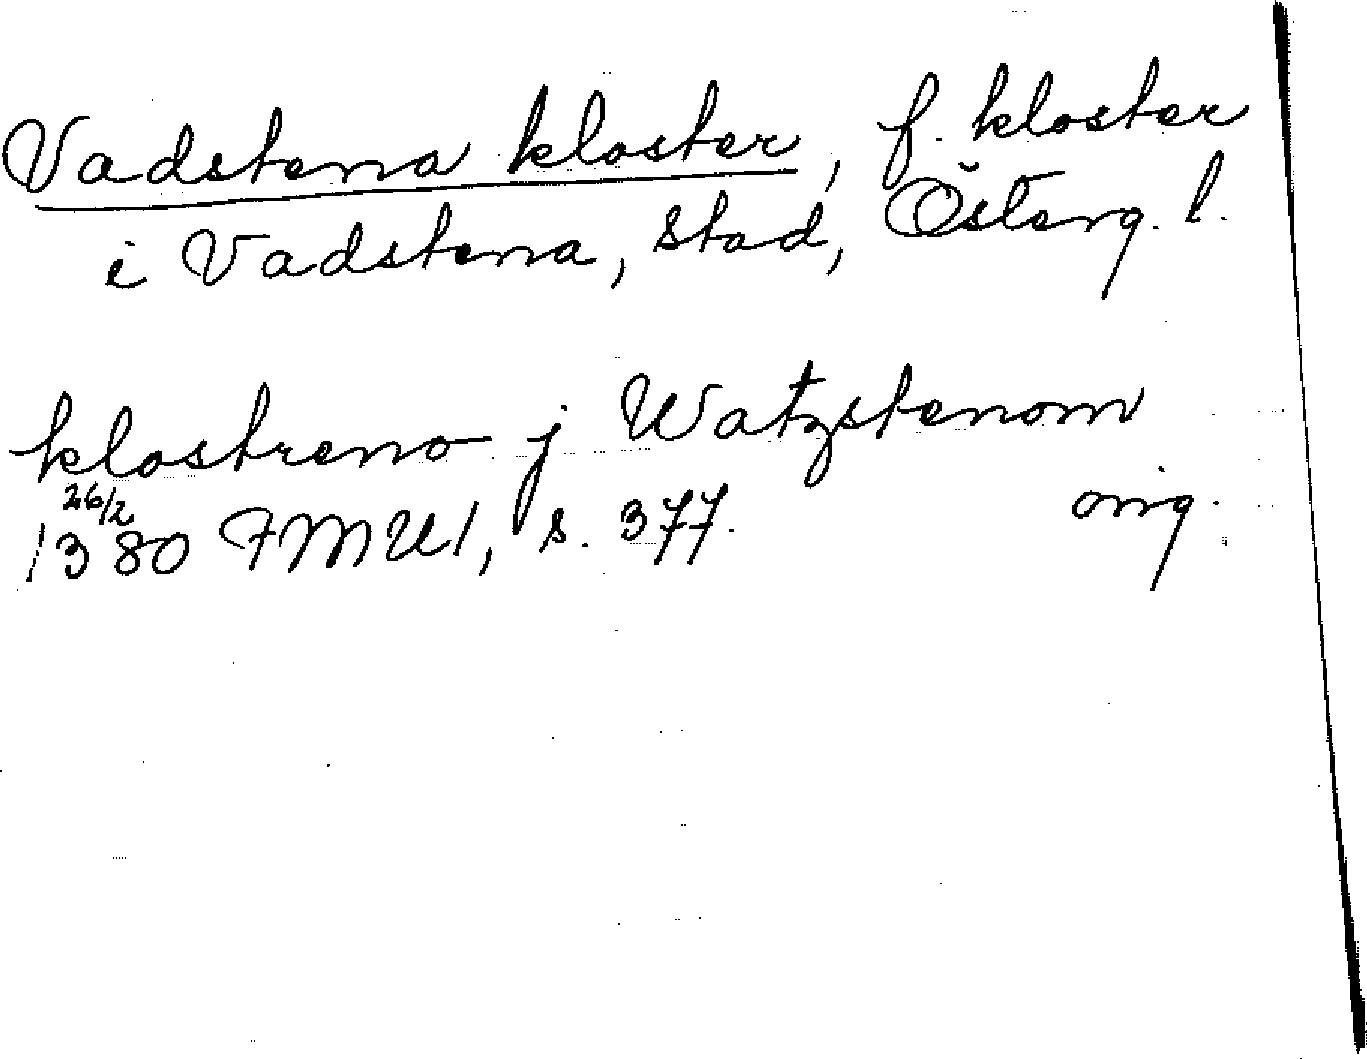 Vadstena kloster, f. kloster
i Vadstena, stad, Österg. l.
klostreno j Watzstenom
26/2
1380 FMU 1, s. 377. orig.